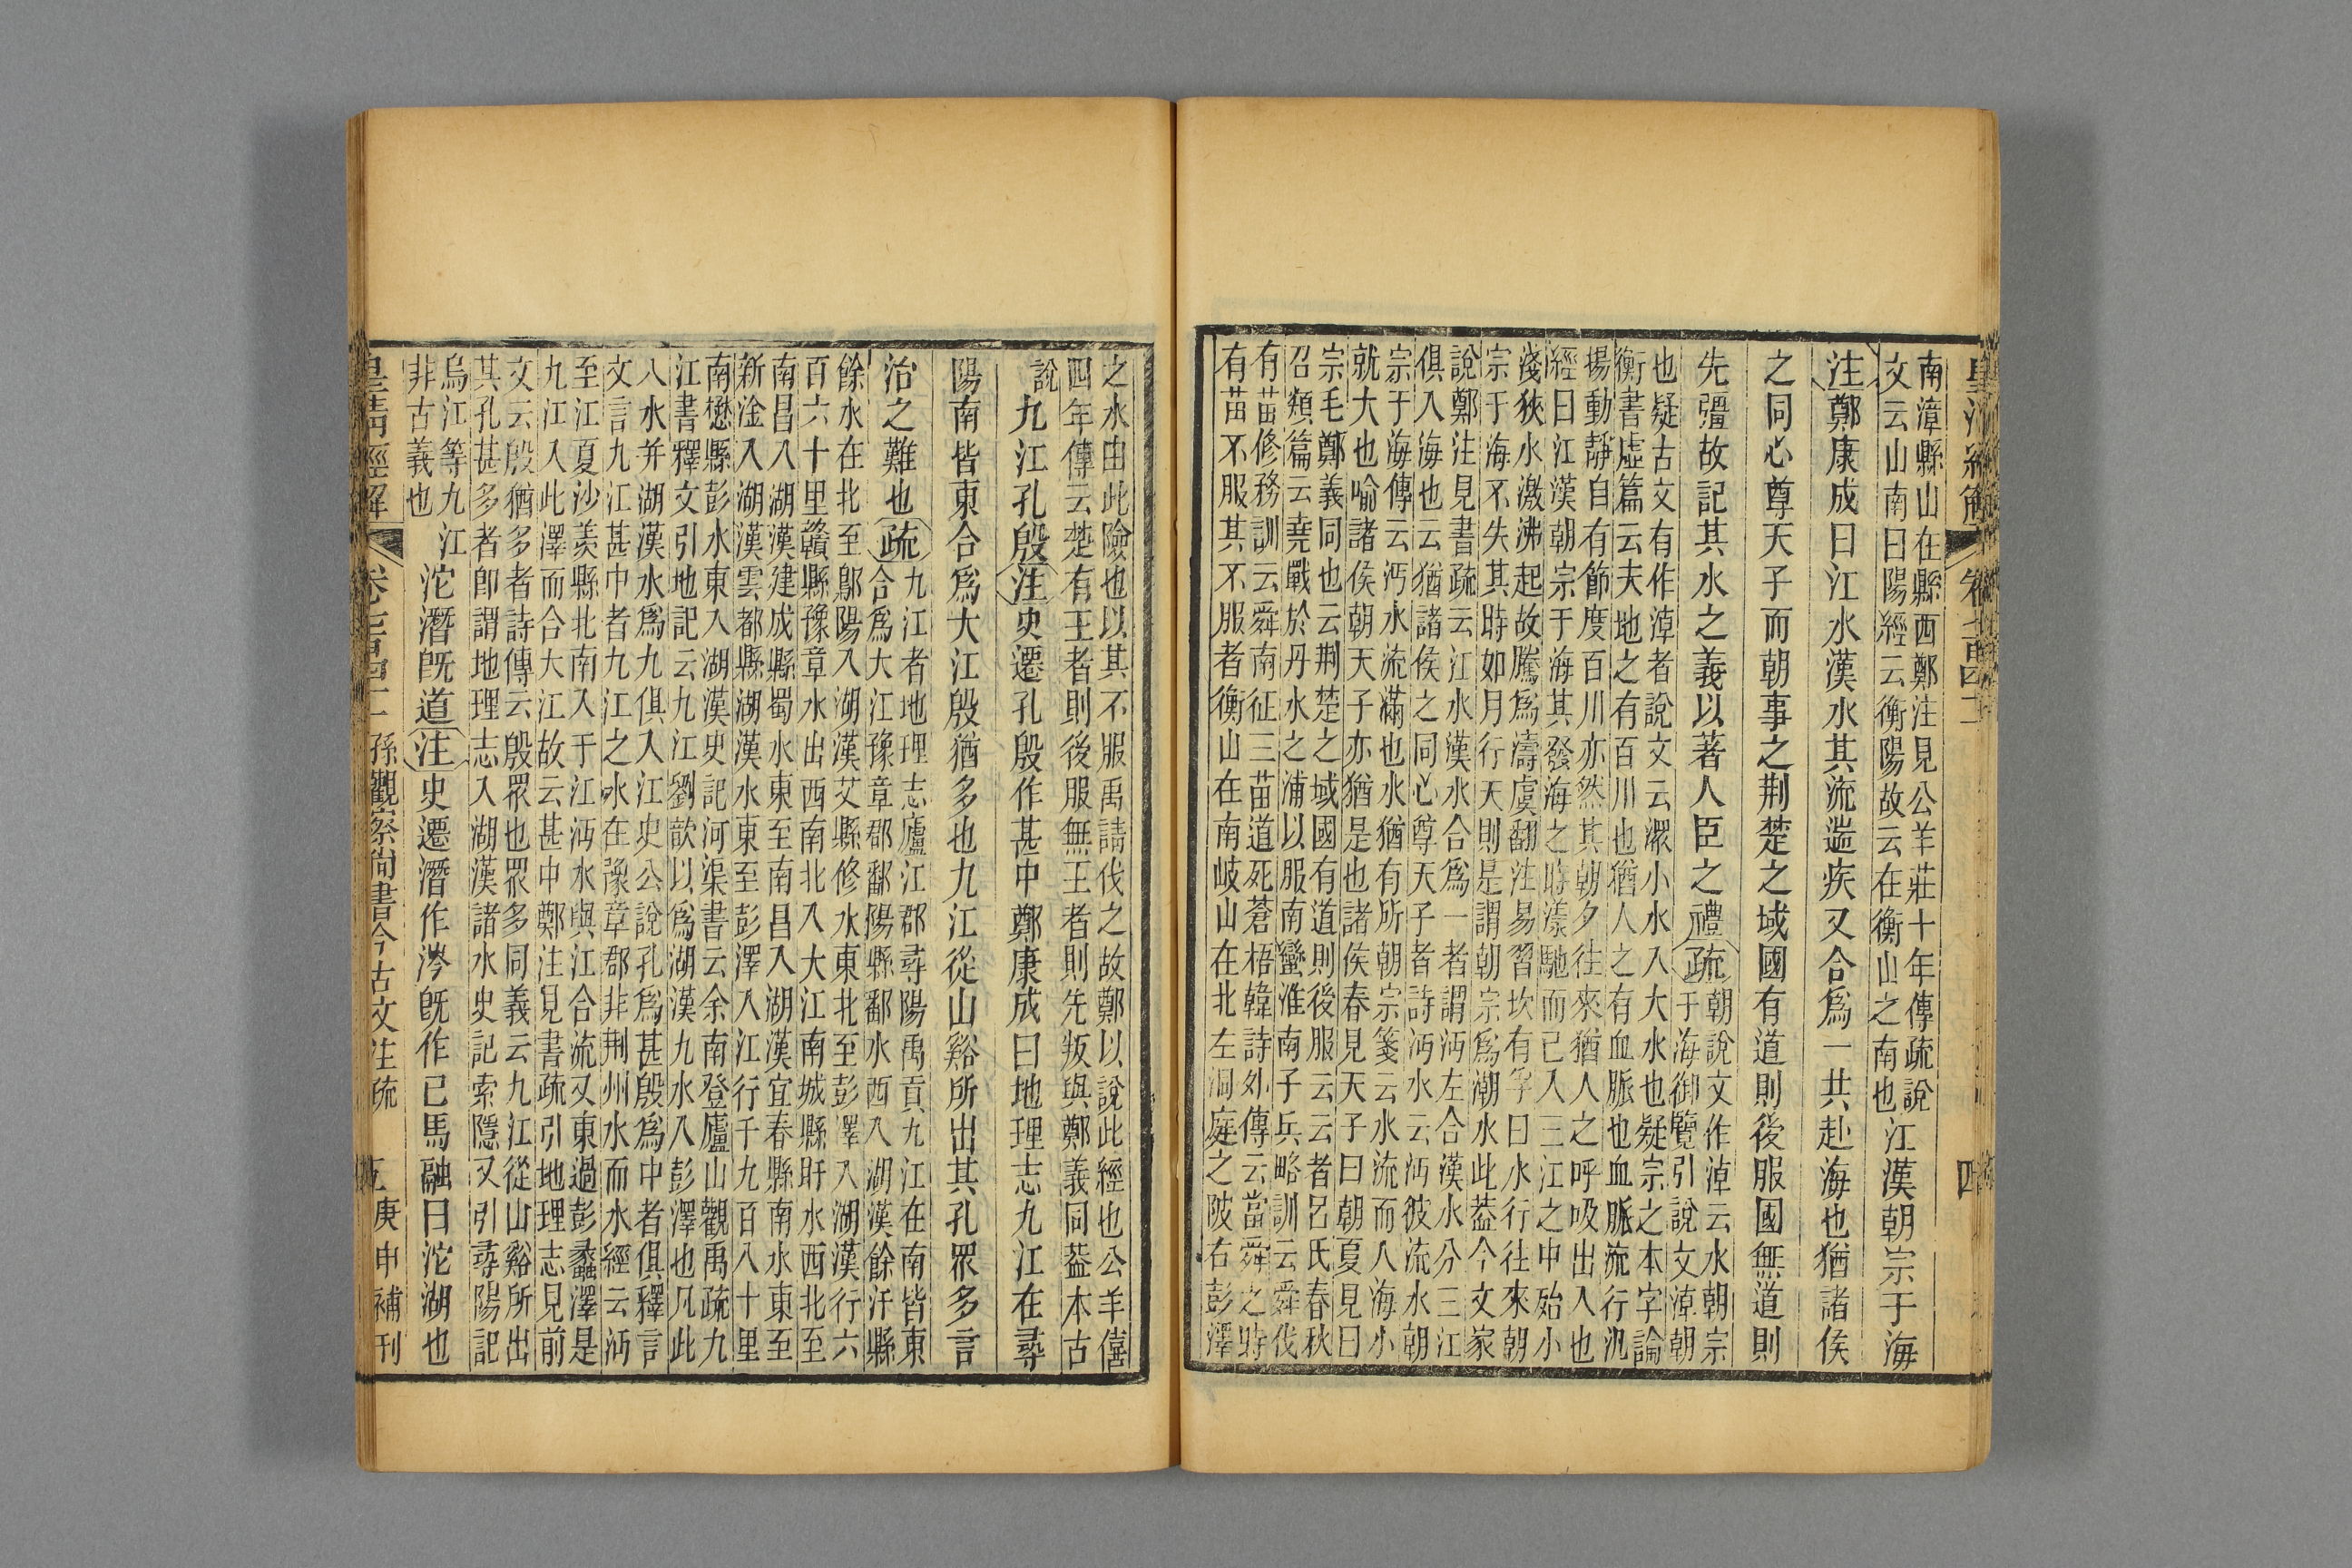 皇清經解
卷七百四十二
四
南漳縣山在縣西鄭注見公羊莊十年傳疏說
文云山南曰陽經云衡陽故云在衡山之南也
江漢朝宗于海
注鄭康成曰江水漢水其流遄疾又合爲一共赴海也猶諸侯
之同心尊天子而朝事之荆楚之域國有道則後服國無道則
先彊故記其水之義以著人臣之禮疏
朝說文作淖云水朝宗
于海御覽引說文淖朝
也疑古文有作淖者說文云濢小水入大水也疑宗之本字論
衡書虛篇云夫地之有百川也猶人之有血脈也血脈流行汎
揚動靜自有節度百川亦然其朝夕往來猶人之呼吸出入也
經曰江漢朝宗于海其發海之時漾馳而已入三江之中殆小
淺狹水激沸起故騰爲濤虞翻注易習坎有孚曰水行往來朝
宗于海不失其時如月行天則是謂朝宗爲潮水此葢今文家
說鄭注見書疏云江水漢水合爲一者謂沔左合漢水分三江
俱入海也云猶諸侯之同心尊天子者詩沔水云沔彼流水朝
宗于海傳云沔水流滿也水猶有所朝宗箋云水流而入海小
就大也喻諸侯朝天子亦猶是也諸侯春見天子曰朝夏見曰
宗毛鄭義同也云荆楚之域國有道則後服云云者呂氏春秋
召類篇云堯戰於丹水之浦以服南蠻淮南子兵略訓云舜伐
有苗修務訓云舜南征三苗道死蒼梧韓詩外傳云當舜之時
有苗不服其不服者衡山在南岐山在北左洞庭之陂右彭澤
之水由此險也以其不服禹請伐之故鄭以說此經也公羊僖
四年傳云楚有王者則後服無王者則先叛與鄭義同葢本古
說
九江孔殷注史遷孔殷作甚中鄭康成曰地理志九江在尋
陽南皆東合爲大江殷猶多也九江從山谿所出其孔眾多言
治之難也疏
九江者地理志廬江郡尋陽禹貢九江在南皆東
合爲大江豫章郡鄱陽縣鄱水西入湖漢餘汗縣
餘水在北至鄡陽入湖漢艾縣修水東北至彭澤入湖漢行六
百六十里贛縣豫章水出西南北入大江南城縣盱水西北至
南昌入湖漢建成縣蜀水東至南昌入湖漢宜春縣南水東至
新淦入湖漢雲都縣湖漢水東至彭澤入江行千九百八十里
南懋縣彭水東入湖漢史記河渠書云余南登廬山觀禹疏九
江書釋文引地記云九江劉歆以爲湖漢九水入彭澤也凡此
八水并湖漢水爲九俱入江史公說孔爲甚殷爲中者俱釋言
文言九江甚中者九江之水在豫章郡非荆州水而水經云沔
至江夏沙羡縣北南入于江沔水與江合流又東過彭蠡澤是
九江入此澤而合大江故云甚中鄭注見書疏引地理志見前
文云殷猶多者詩傳云殷眾也眾多同義云九江從山谿所出
其孔甚多者卽謂地理志入湖漢諸水史記索隱又引尋陽記
烏江等九江
非古義也
沱潛旣道注史遷潛作涔旣作已馬融曰沱湖也
皇清經解
卷七百四十二
孫觀察尙書今古文注疏
五
庚申補刊